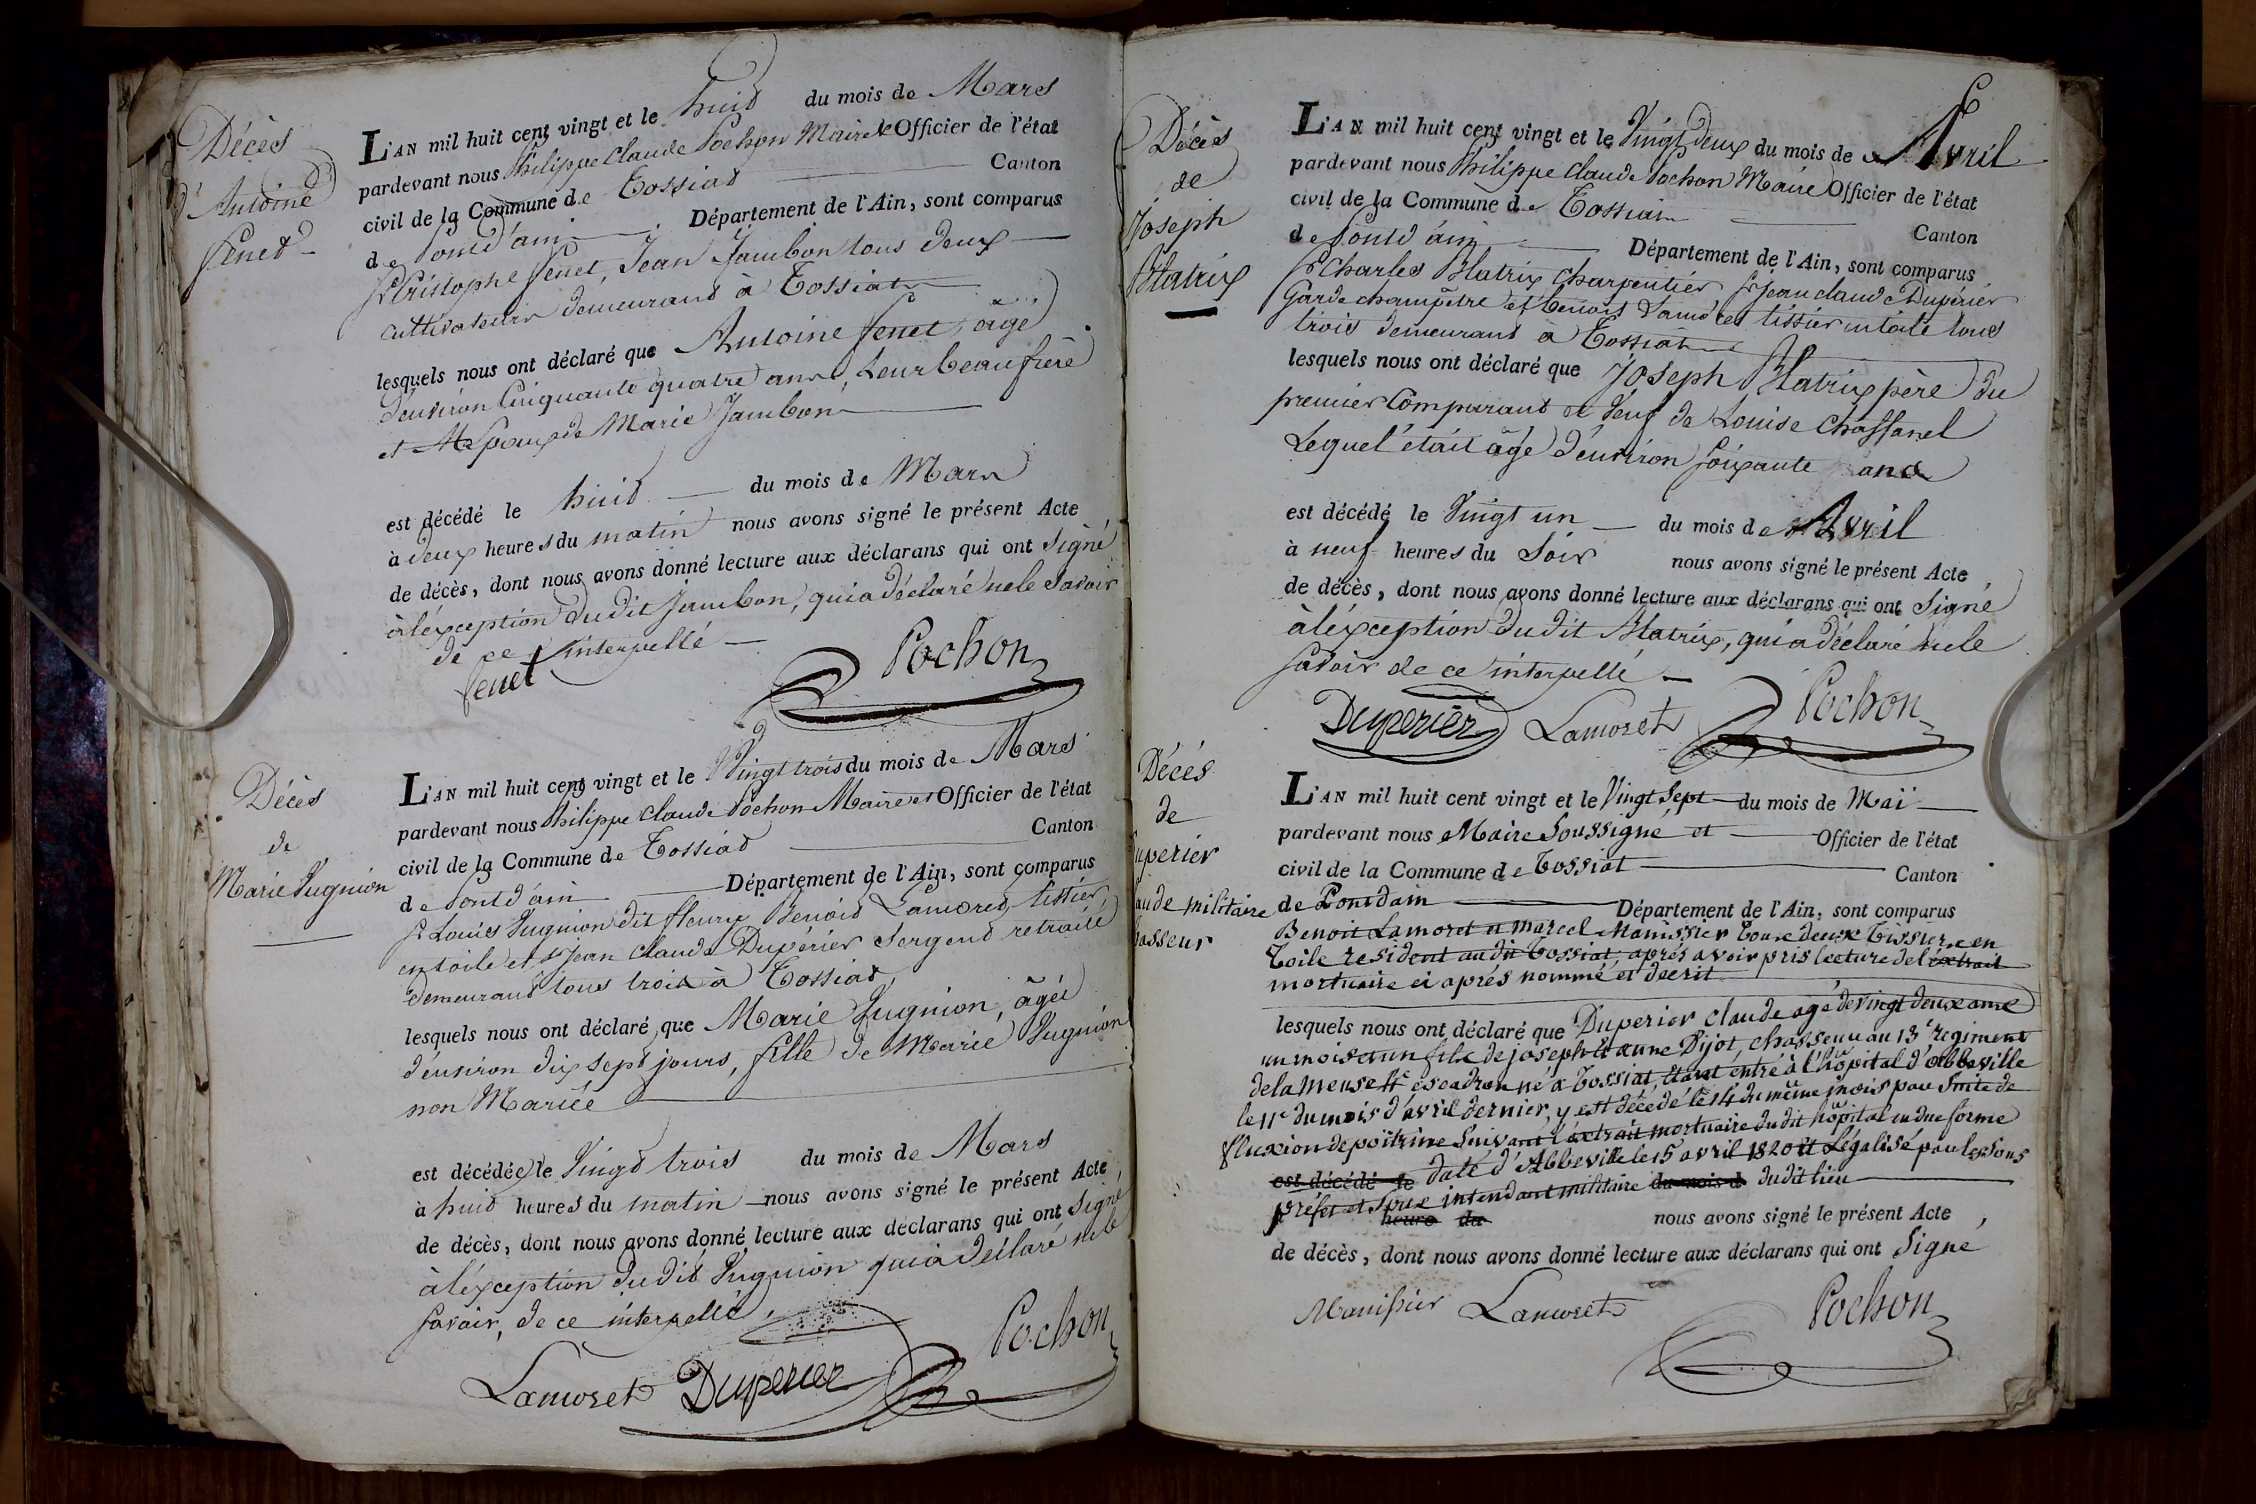 Décès
d'Antoine
fenet
L'AN mil huit cent vingt et le huit du mois de Mars
pardevant nous Philippe Claude Pochon Maire et Officier de l'état
civil de la Commune de Tossiat Canton
de Pont d'ain Département de l'Ain, sont comparus
Sr Cristophe fenet, Jean Jambon tous deux
cultivateurs demeurant à Tossiat
lesquels nous ont déclaré que Antoine fenet, agé
d'environ Cinquante quatre ans, Leur beaufrère
et Epoux de Marie Jambon
est décédé le huit du mois de Mars
à deux heures du matin nous avons signé le présent Acte
de décès, dont nous avons donné lecture aux déclarans qui ont Signé
à l'éxception dudit Jambon, qui a déclaré ne le savoir
de ce interpellé
fenet Pochon
Décès
de
Marie Vugnion
L'AN mil huit cent vingt et le Vingt trois du mois de Mars
pardevant nous Philippe Claude Pochon Maire et Officier de l'état
civil de la Commune de Tossiat Canton
de Pont d'ain Département de l'Ain, sont comparus
Sr Louis Vugnion dit fleury Benoit Lamoret tissier
en toile et Sr Jean Claude Dupérier Sergent retraité
demeurant tous trois à Tossiat,
lesquels nous ont déclaré que Marie Vugnion, âgée
d'environ dix sept jours, fille de Marie Vugnion
non Mariée
est décédée le Vingt trois du mois de Mars
à huit heures du matin nous avons signé le présent Acte,
de décès, dont nous avons donné lecture aux déclarans qui ont Signé
à l'éxception dudit Vugnion qui a déclaré ne le
savoir, de ce interpellé,
Lamoret Duperier Pochon
Décès
de
Joseph
Blatrix
L'AN mil huit cent vingt et le Vingt deux du mois de Avril
pardevant nous Philippe Claude Pochon Maire Officier de l'état
civil de la Commune de Tossiat Canton
de Pont d'ain Département de l'Ain, sont comparus
Sr Charles Blatrix Charpentier Sr Jean claude Duperier
Garde champêtre et Benoit Lamoret tissier en toile tous
trois demeurant à Tossiat
lesquels nous ont déclaré que Joseph Blatrix père du
premier Comparant et Veuf de Louise Chassanel
Lequel était âgé d'environ soixante ans
est décédé le Vingt un du mois de Avril
à neuf heures du Soir nous avons signé le présent Acte
de décès, dont nous avons donné lecture aux déclarans qui ont Signé
à l'éxception dudit Blatrix, qui a déclaré ne le
savoir de ce interpellé
Duperier Lamoret Pochon
Décés
de
uperier
aude militaire
asseur
L'AN mil huit cent vingt et le Vingt Sept du mois de Mai
pardevant nous Maire Soussigné et Officier de l'état
civil de la Commune de Tossiat Canton
de Pontdain Département de l'Ain, sont comparus
Benoit Lamoret et marcel Manissier tous deux Tissiers en
Toile resident audit Tossiat, aprés avoir pris lecture de l'extrait
mortuaire ci aprés nommé et decrit
lesquels nous ont déclaré que Duperier claude agé de vingt deux ans
un mois et un fils de joseph et anne Pijot, chasseur au 13e regiment
de la meuse 4e escadron né a Tossiat, étant entré à l'hôpital d'abbeville
le 11e du mois d'avril dernier, y est décedé le 14 du même mois par Suite de
fluxion de poitrine Suivant l'extrait mortuaire dudit hôpital en due forme
est décédé le daté d'Abbeville le 15 avril 1820 et Légalisé par les Sous
préfet et Sous intendant militaire du mois d dudit lieu
heure du nous avons signé le présent Acte,
de décès, dont nous avons donné lecture aux déclarans qui ont Signé
Manissier Lamoret Pochon